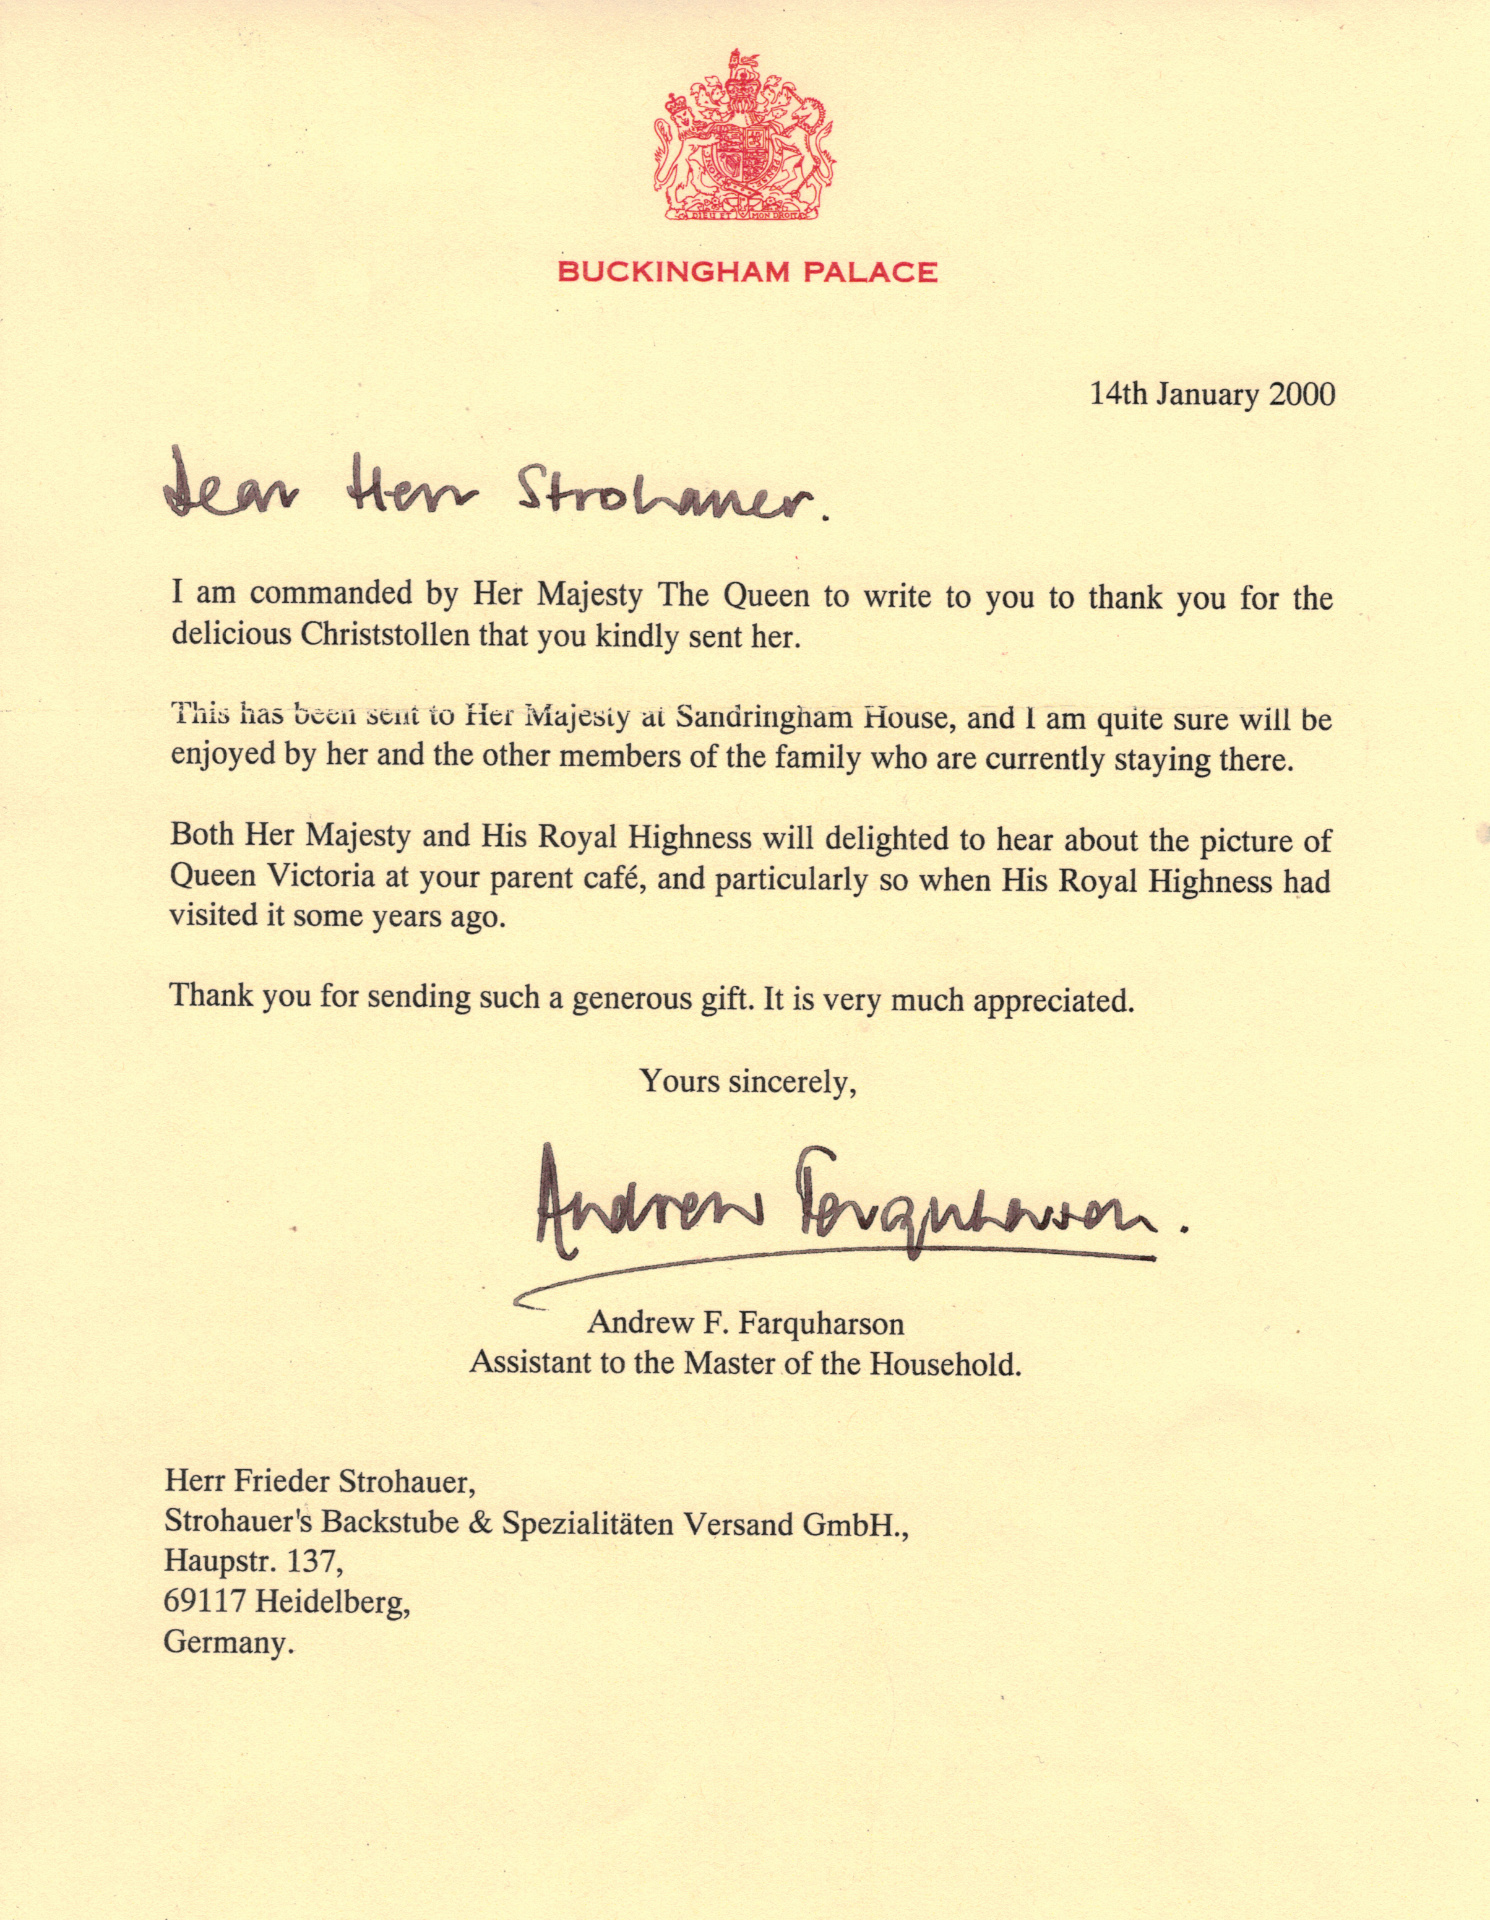 DIEU ET MON DROIT
BUCKINGHAM PALACE
14th January 2000
Dear Herr Strohauer.
I am commanded by Her Majesty The Queen to write to you to thank you for the
delicious Christstollen that you kindly sent her.
This has been sent to Her Majesty at Sandringham House, and I am quite sure will be
enjoyed by her and the other members of the family who are currently staying there.
Both Her Majesty and His Royal Highness will delighted to hear about the picture of
Queen Victoria at your parent café, and particularly so when His Royal Highness had
visited it some years ago.
Thank you for sending such a generous gift. It is very much appreciated.
Yours sincerely,
Andrew Farquharson.
Andrew F. Farquharson
Assistant to the Master of the Household.
Herr Frieder Strohauer,
Strohauer's Backstube & Spezialitäten Versand GmbH.,
Haupstr. 137,
69117 Heidelberg,
Germany.